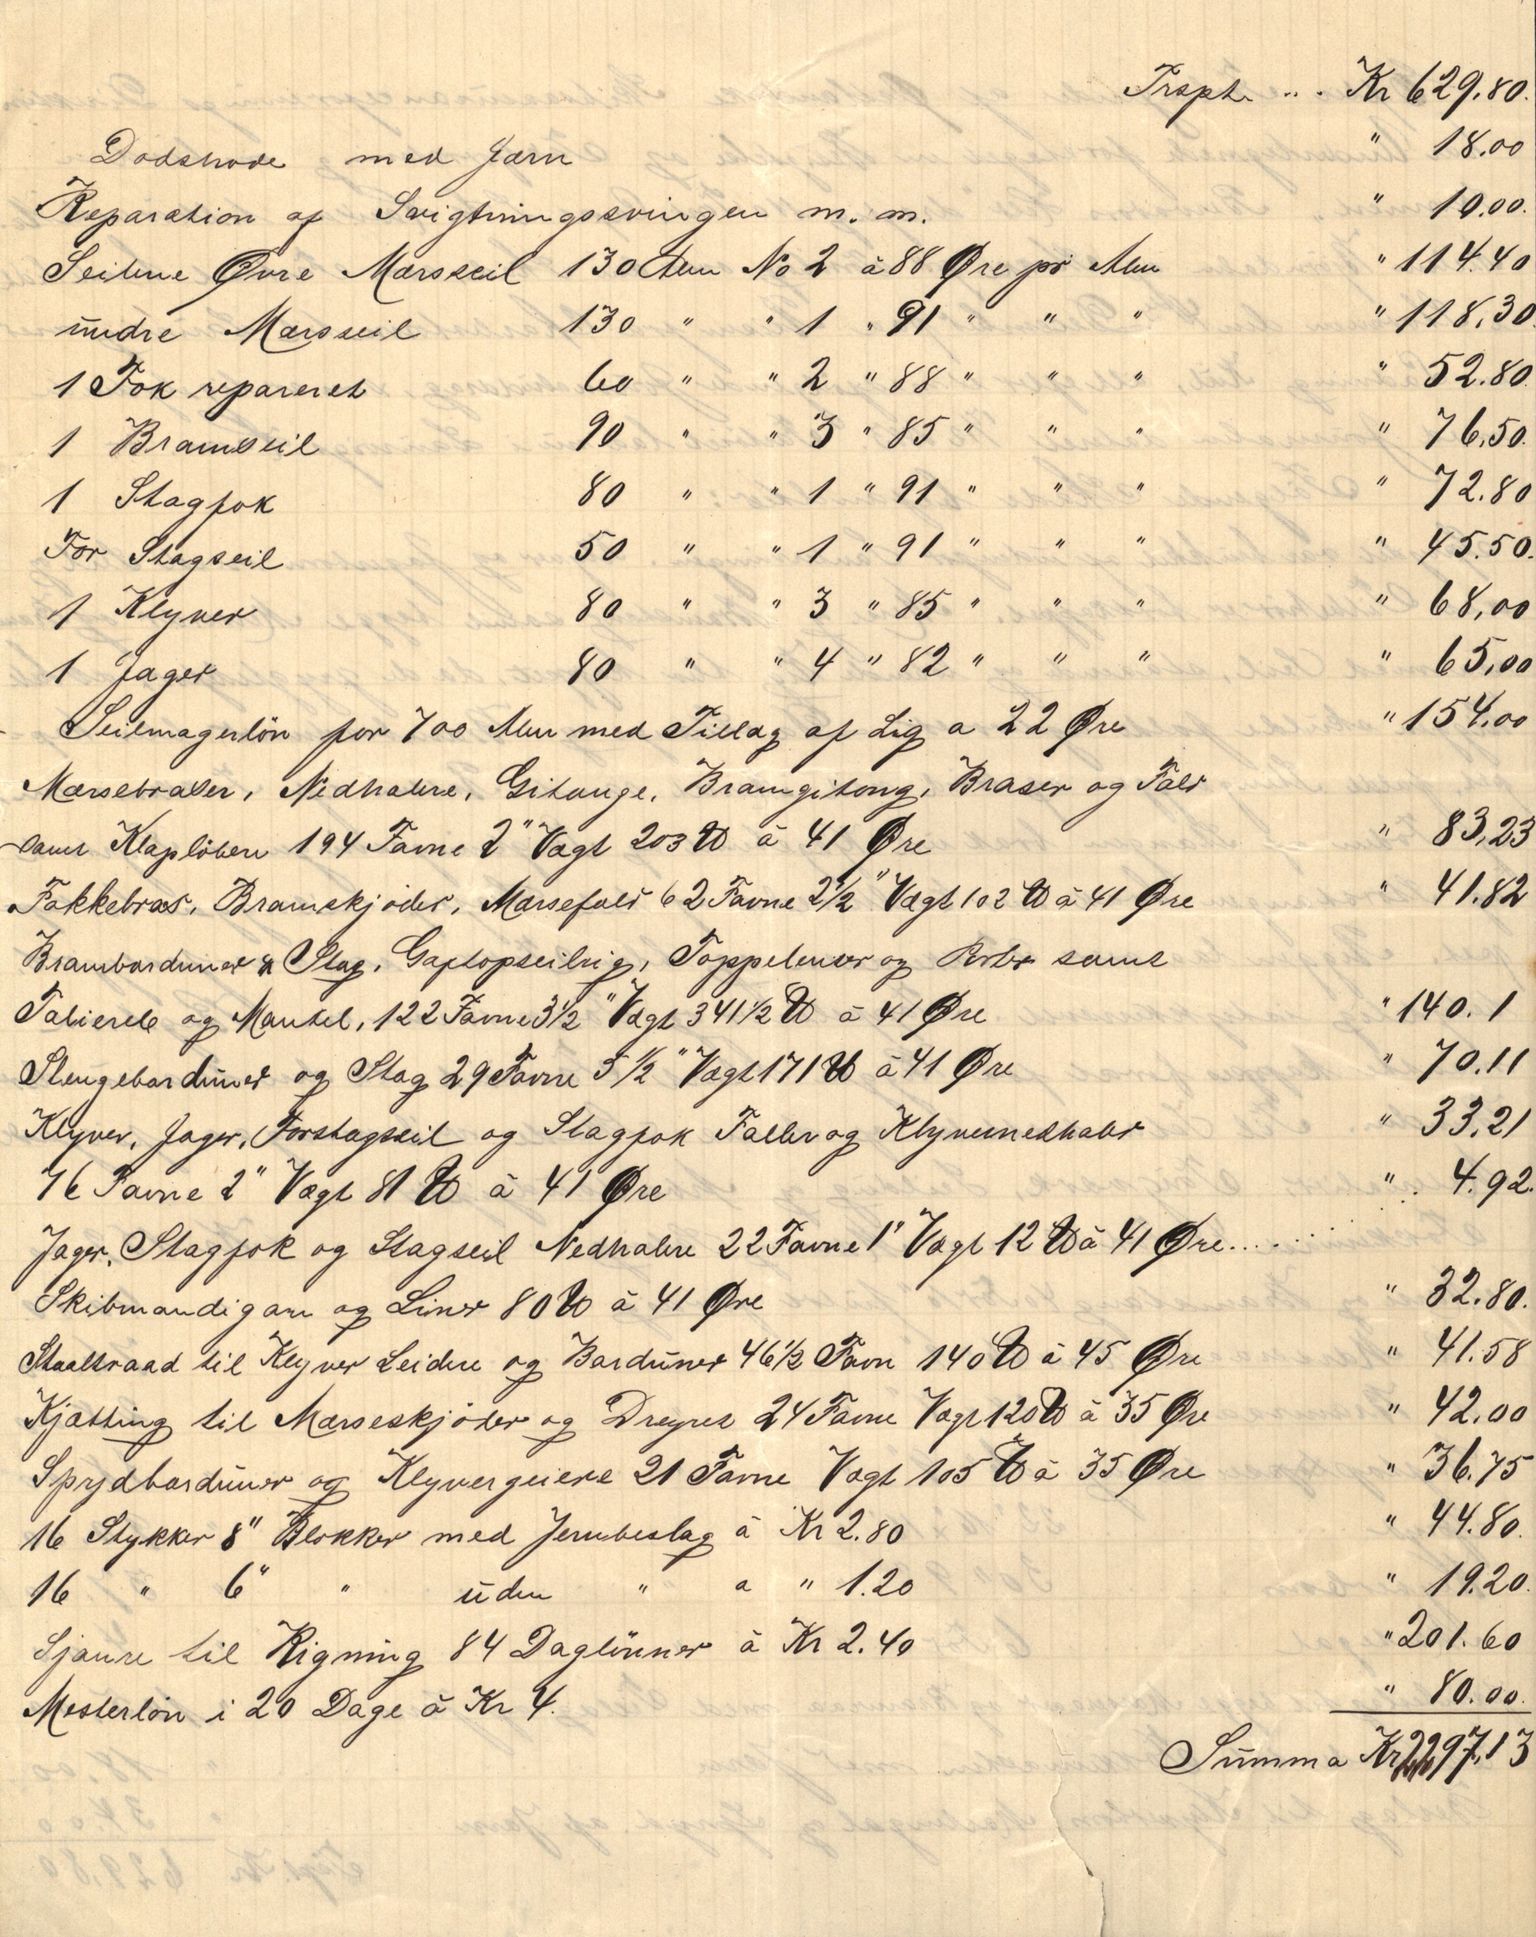 Trspt. ... Kr 629.80.
Dodshode med Jærn " 18.00
Reparation af Svigtningssvingen m. m. " 10.00.
Seilene Øvre Mærsseil 130 Alen No 2 à 88 Øre pr Alen " 114.40
undre Mærsseil 130 " " 1 " 91 " " " " 118,30
1 Fok repareret 60 " " 2 " 88 " " " " 52.80.
1 Bramseil 90 " " 3 " 85 " " " " 76,50.
1 Stagfok 80 " " 1 " 91 " " " " 72.80
For Stagseil 50 " " 1 " 91 " " " " 45.50.
1 Klyver 80 " " 3 " 85 " " " " 68,00
1 Jager 80 " " 4 " 82 " " " " 65,00
Seilmagerlön for 700 Alen med Tillag af Lig a 22 Øre " 154.00
Mærsebraser, Nedhalere, Gitauge, Bramgitong, Braser og Fald
samt Klaplöbere 194 Favne 2" Vægt 203 ℔ à 41 Øre " 83,23
Fokkebras, Bramskjöder, Mærsefald 62 Favne 2½" Vægt 102 ℔ à 41 Øre " 41.82
Brambarduner & Stag, Gaptopseilrig, Toppelenter og samt
Taliereb og Mantel, 122 Favne 3½" Vægt 341½ ℔ à 41 Øre " 140. 1
Stengebarduner og Stag 29 Favne 5½" Vægt 171 ℔ à 41 Øre " 70.11
Klyver, Jager, Forstagseil og Stagfok Falder og Klyvernedhaler " 33,21
76 Favne 2" Vægt 81 ℔ à 41 Øre " 4.92.
Jager, Stagfok og Stagseil Nedhalere 22 Favne 1" Vægt 12 ℔ à 41 Øre......
Skibmandigarn og Liner 80 ℔ à 41 Øre " 32.80.
Staaltraad til Klyver Leidere og Barduner 46½ Favn 140 ℔ à 45 Øre " 41.58
Kjætting til Mærseskjöder og Dreyret 24 Favne Vægt 120 ℔ à 35 Øre " 42.00
Sprydbarduner og Klyvergeiere 21 Favne Vægt 105 ℔ à 35 Øre " 36.75
16 Stykker 8" Blokker med Jernbeslag à Kr 2.80 " 44.80.
16 " 6" " uden " a " 1.20 " 19.20.
Sjauere til Rigning 84 Daglönner à Kr 2.40 " 201.60
Mesterlön i 20 Dage à Kr 4. " 80.00.
Summa Kr 2297,13